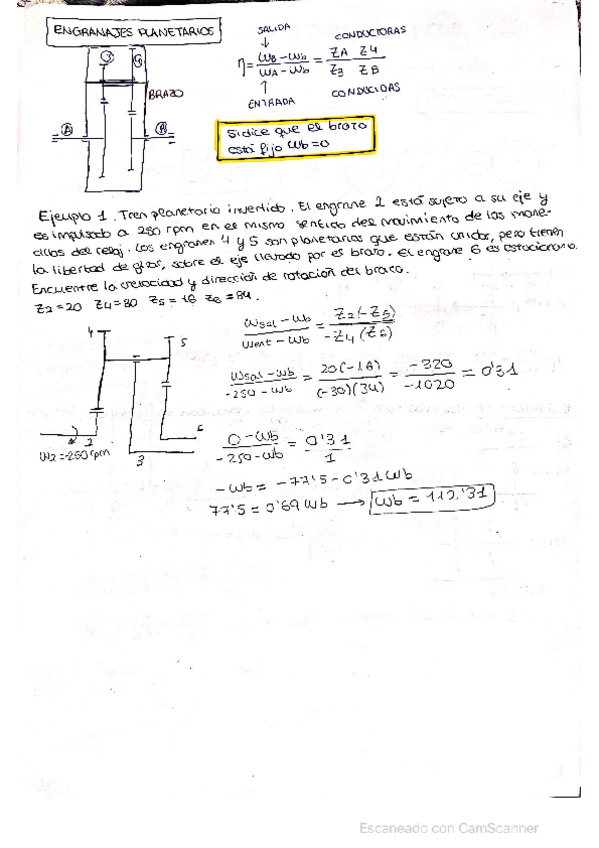 ENGRANAJES PLANETARIOS
SALIDA
CONDUCTORAS
η = ωB - ωb / ωA - ωb = ZA Z4 / Z3 ZB
ENTRADA
CONDUCIDAS
3 4
BRAZO
A B
Si dice que el brazo
está fijo ωb = 0
Ejemplo 1. Tren planetario invertido. El engrane 2 está sujeto a su eje y
es impulsado a 250 rpm en el mismo sentido del movimiento de las mane-
cillas del reloj. Los engranes 4 y 5 son planetarios que están unidos, pero tienen
la libertad de girar, sobre el eje llevado por es brazo. El engrane 6 es estacionario.
Encuentre la velocidad y dirección de rotación del brazo.
Z2 = 20 Z4 = 30 Z5 = 16 Z6 = 34.
ωsal - ωb / ωent - ωb = Z2 (-Z5) / -Z4 (Z6)
4 5
ωsal - ωb / -250 - ωb = 20(-16) / (-30)(34) = -320 / -1020 = 0'31
2 6
ω2 = -250 rpm
3
0 - ωb / -250 - ωb = 0'31 / 1
-ωb = -77'5 - 0'31 ωb
77'5 = 0'69 ωb → ωb = 112'31
Escaneado con CamScanner